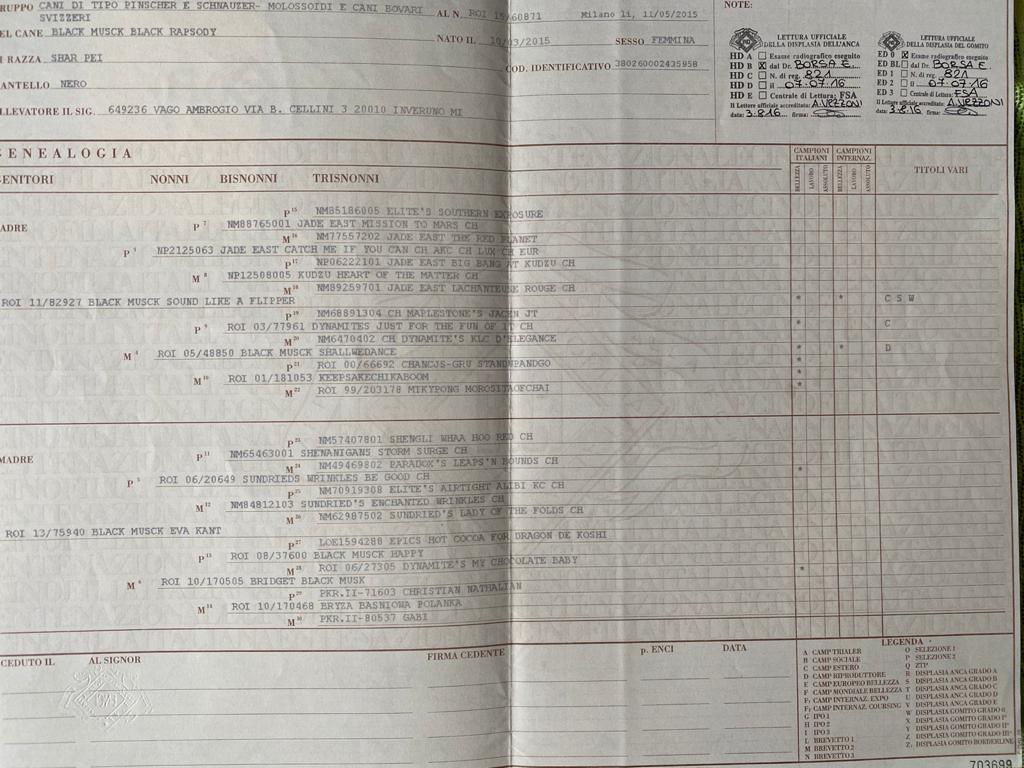 RUPPO CANI DI TIPO PINSCHER E SCHNAUZER- MOLOSSOIDI E CANI BOVARI SVIZZERI
AL N. ROI 15/60871 Milano li, 11/05/2015
EL CANE BLACK MUSCK BLACK RAPSODY
NATO IL 10/03/2015 SESSO FEMMINA
I RAZZA SHAR PEI
COD. IDENTIFICATIVO 380260002435958
ANTELLO NERO
LLEVATORE IL SIG. 649236 VAGO AMBROGIO VIA B. CELLINI 3 20010 INVERUNO MI
NOTE:
LETTURA UFFICIALE
DELLA DISPLASIA DELL'ANCA
HD A Esame radiografico eseguito
HD B X dal Dr. BORSA E.
HD C N. di reg. 821
HD D il 07.07.16
HD E Centrale di Lettura: FSA
Il Lettore ufficiale accreditato: A.VEZZONI
data: 3.8.16 firma:
LETTURA UFFICIALE
DELLA DISPLASIA DEL GOMITO
ED 0 X Esame radiografico eseguito
ED BL dal Dr. BORSA E.
ED 1 N. di reg. 821
ED 2 il 07.07.16
ED 3 Centrale di Lettura: FSA
Il Lettore ufficiale accreditato: A.VEZZONI
data: 3.8.16 firma:
ENEALOGIA
CAMPIONI ITALIANI
CAMPIONI INTERNAZ.
BELLEZZA LAVORO ASSOLUTO BELLEZZA LAVORO ASSOLUTO
TITOLI VARI
ENITORI NONNI BISNONNI TRISNONNI
P15 NM85186005 ELITE'S SOUTHERN EXPOSURE
ADRE P7 NM88765001 JADE EAST MISSION TO MARS CH
M16 NM77557202 JADE EAST THE RED PLANET
P3 NP2125063 JADE EAST CATCH ME IF YOU CAN CH AKC CH LUX CH EUR
P17 NP06222101 JADE EAST BIG BANG AT KUDZU CH
M8 NP12508005 KUDZU HEART OF THE MATTER CH
M18 NM89259701 JADE EAST LACHANTEUSE ROUGE CH
ROI 11/82927 BLACK MUSCK SOUND LIKE A FLIPPER * * C S W
P19 NM68891304 CH MAPLESTONE'S JACEN JT
P9 ROI 03/77961 DYNAMITES JUST FOR THE FUN OF IT CH * C
M20 NM6470402 CH DYNAMITE'S KLC D'ELEGANCE
M4 ROI 05/48850 BLACK MUSCK SHALLWEDANCE * * D
P21 ROI 00/66692 CHANCJS-GRU STANDUPANDGO *
M10 ROI 01/181053 KEEPSAKECHIKABOOM *
M22 ROI 99/203178 MIKYPONG MOROSITAOFCHAI *
P23 NM57407801 SHENGLI WHAA HOO RED CH
MADRE P11 NM65463001 SHENANIGANS STORM SURGE CH
M24 NM49469802 PARADOX'S LEAPS'N BOUNDS CH
P5 ROI 06/20649 SUNDRIEDS WRINKLES BE GOOD CH *
P25 NM70919308 ELITE'S AIRTIGHT ALIBI KC CH
M12 NM84812103 SUNDRIED'S ENCHANTED WRINKLES CH
M26 NM62987502 SUNDRIED'S LADY OF THE FOLDS CH
ROI 13/75940 BLACK MUSCK EVA KANT
P27 LOE1594288 EPICS HOT COCOA FOR DRAGON DE KOSHI
P13 ROI 08/37600 BLACK MUSCK HAPPY
M28 ROI 06/27305 DYNAMITE'S MY CHOCOLATE BABY *
M6 ROI 10/170505 BRIDGET BLACK MUSK
P29 PKR.II-71603 CHRISTIAN NATHALIAN
M14 ROI 10/170468 BRYZA BASNIOWA POLANKA
M30 PKR.II-80537 GABI
CEDUTO IL AL SIGNOR FIRMA CEDENTE p. ENCI DATA
LEGENDA
A CAMP TRIALER
B CAMP SOCIALE
C CAMP ESTERO
D CAMP RIPRODUTTORE
E CAMP EUROPEO BELLEZZA
F CAMP MONDIALE BELLEZZA
F1 CAMP INTERNAZ. EXPO
F2 CAMP INTERNAZ. COURSING
G IPO 1
H IPO 2
I IPO 3
L BREVETTO 1
M BREVETTO 2
N BREVETTO 3
O SELEZIONE 1
P SELEZIONE 2
Q ZTP
R DISPLASIA ANCA GRADO A
S DISPLASIA ANCA GRADO B
T DISPLASIA ANCA GRADO C
U DISPLASIA ANCA GRADO D
V DISPLASIA ANCA GRADO E
W DISPLASIA GOMITO GRADO 0
X DISPLASIA GOMITO GRADO I°
Y DISPLASIA GOMITO GRADO II°
Z DISPLASIA GOMITO GRADO III°
Z1 DISPLASIA GOMITO BORDERLINE
703699